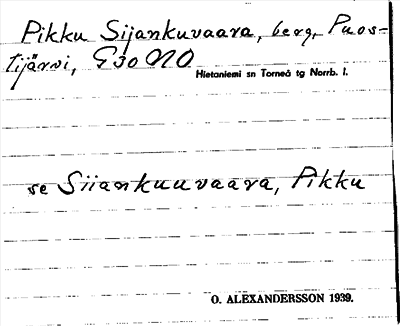 Pikku Sijankuvaara, berg, Puos-
tijärvi, G30 NO
Hietaniemi sn Torneå tg Norrb. l.
se Siiankuuvaara, Pikku
O. ALEXANDERSSON 1939.